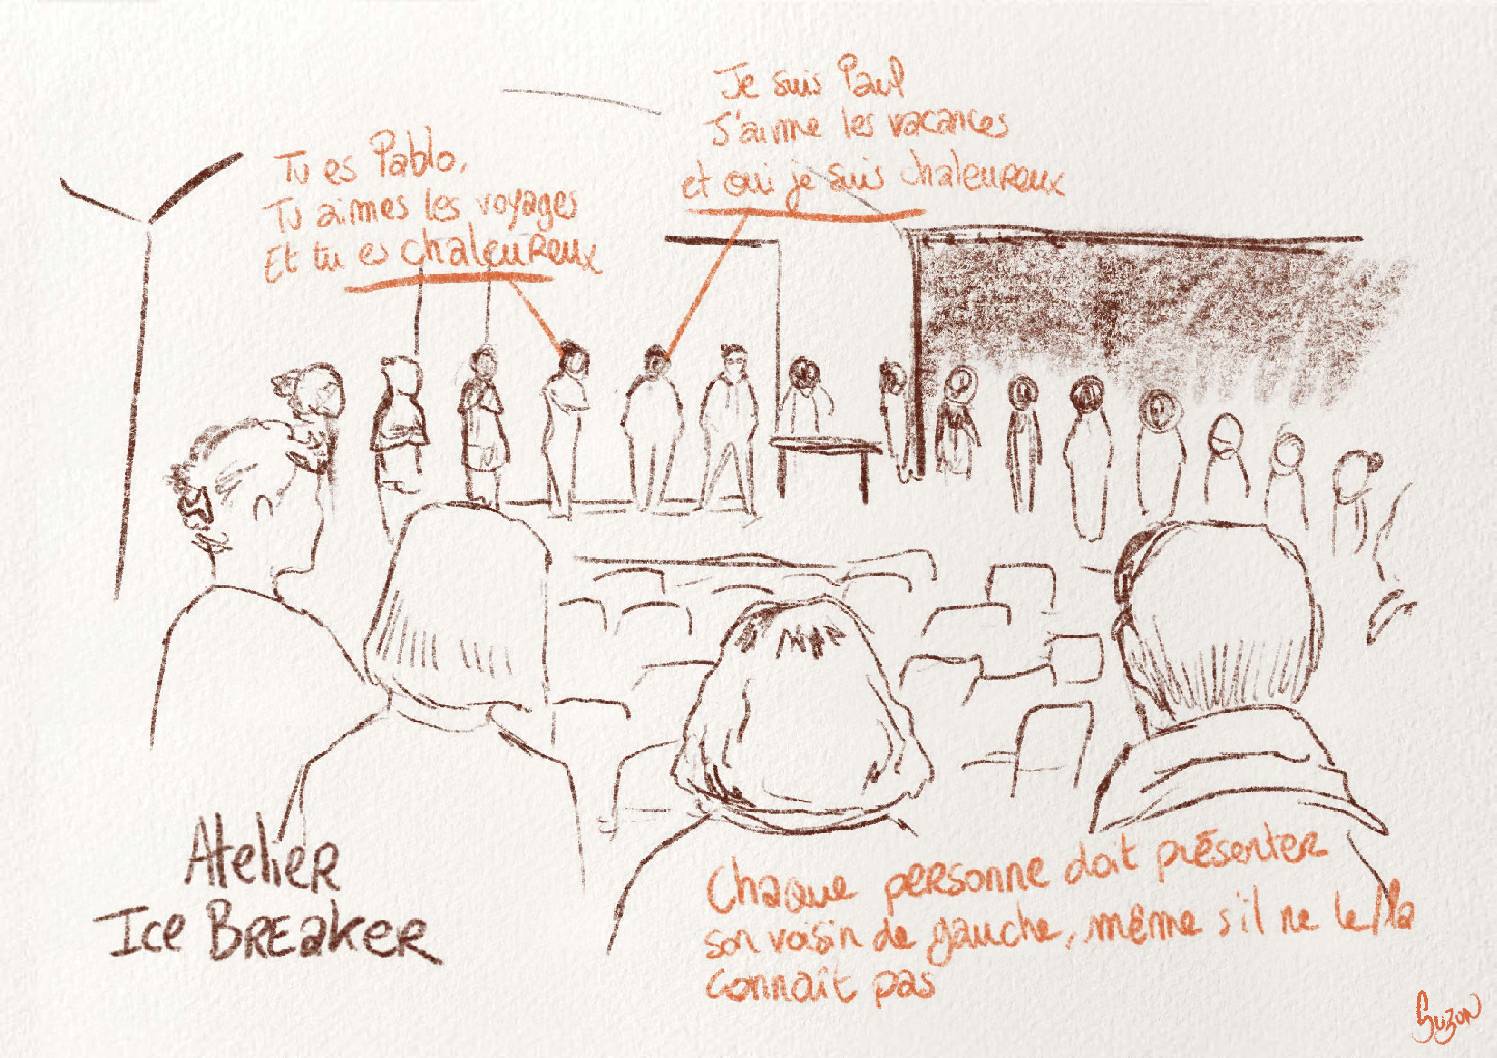 Tu es Pablo,
Tu aimes les voyages
Et tu es chaleureux
Je suis Paul
J'aime les vacances
et oui je suis chaleureux
Atelier
Ice Breaker
Chaque personne doit présenter
son voisin de gauche, même s'il ne le/la
connaît pas
Suzon